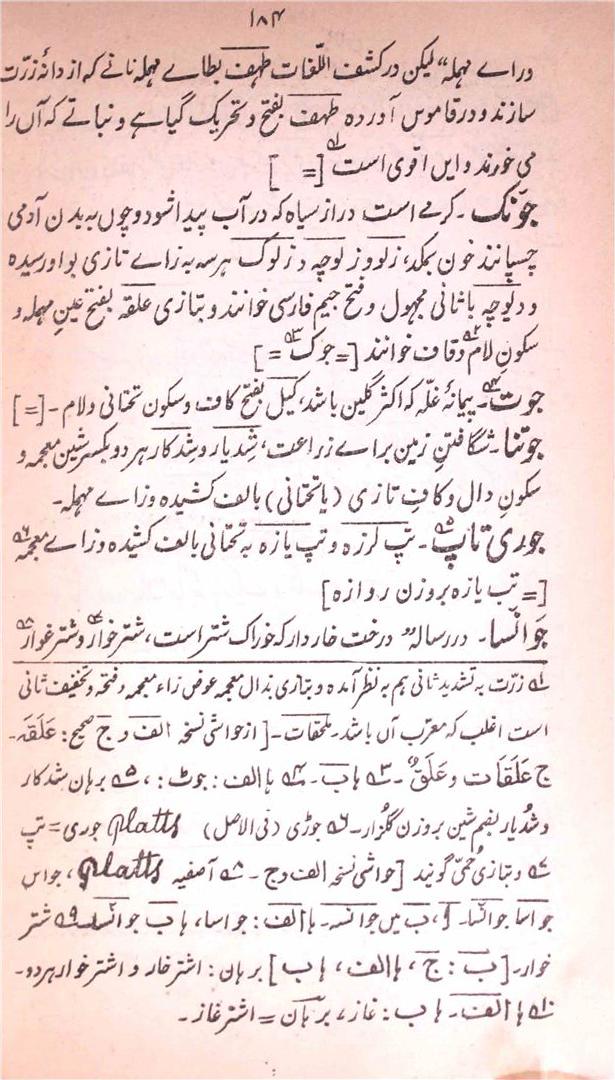 ۱۸۴
وراے مہملہ" لیکن در کشف اللّغات طہف بطاے مہملہ نانے کہ از دانۂ زرّت
سازند و در قاموس آوردہ طہف بفتح و تحریک گیاہے و نباتے کہ آں را
می خورند و ایں اقوی است [= ]
جَونک ۔ کرمے است دراز سیاہ کہ در آب پیدا شود و چوں بہ بدن آدمی
چسپانند خون بمکد، زلو و زلوچہ و زلوک ہر سہ بہ زاے تازی بواو رسیدہ
و دیوچہ باثانی مجہول و فتح جیم فارسی خوانند و بتازی علقہ بفتح عین مہملہ و
سکون لام و قاف خوانند [= جوک =]
جوت ۔ پیمانۂ غلّہ کہ اکثر گلین باشد، کیل بفتح کاف و سکون تحتانی و لام ۔ [=]
جوتنا ۔ شگافتن زمین براے زراعت، شدیار و شدکار ہر دو بکسر شین معجمہ و
سکون دال و کاف تازی (یا تحتانی) بالف کشیدہ و زاے مہملہ ۔
جوری تاپ ۔ تپ لرزہ و تپ یازہ بہ تحتانی بالف کشیدہ و زاے معجمہ
[= تپ یازہ بروزن روازہ]
جوانسا ۔ در رسالہ" درخت خاردار کہ خوراک شتر است، شتر خوار و شتر غوار
۱ زرّت بہ تشدید ثانی ہم بہ نظر آمدہ و بتازی بذال معجمہ عوض زاء معجمہ و فتحہ و تخفیف ثانی
است اغلب کہ معرّب آں باشد ۔ ملحقات ۔ [از حواشی نسخہ الف و ج صحیح : عَلَقَہ ۔
ج عَلَقَات و عَلَقٌ ۔ ۳ ہا ب ۔ ۴ ہا الف : جوٹ :، ۵ برہان شدکار
و شُدیار بضم شین بروزن گلزار ۔ ۶ جوڑی (فی الاصل) Platts جوری = تپ
۷ و بتازی حُمّیٰ گویند [حواشی نسخہ الف و ج ۔ ۸ آصفیہ Platts، جواس
جواسا جوانسا ۔ ا، ب میں جوانسہ ۔ ہا الف : جواسا، ہا ب جوانسہ ۹ شتر
خوار ۔ [ب : ج، ہا الف، ہا ب] برہان : اشتر خار و اشتر خوار ہر دو ۔
۱۰ ہا الف ۔ ہا ب : غاز، برہان = اشتر غاز ۔